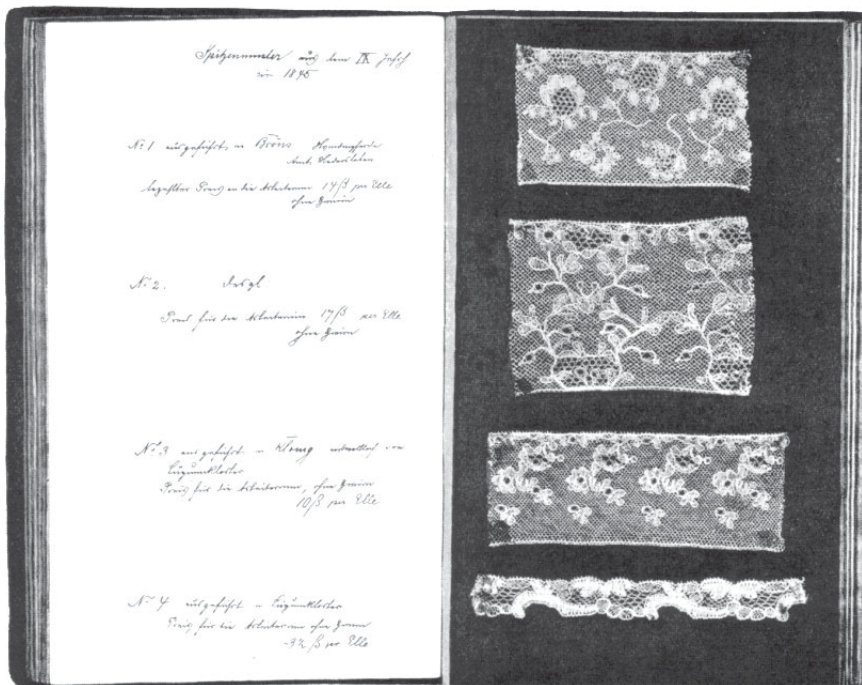 Spitzenmuster aus dem IX Jahrh
von 1845
No 1 ausgeführt in Bröns
Amt Hadersleben
bezahlter Preis an die Arbeiterin 17 ß per Elle
ohne Zwirn
No 2. desgl
Preis für die Arbeiterin 17 ß per Elle
ohne Zwirn
No 3 ausgeführt in nordwestlich von
Lügumkloster
Preis für die Arbeiterin, ohne Zwirn
10 ß per Elle
No 4 ausgeführt in Lügumkloster
Preis für die Arbeiterin ohne Zwirn
32 ß per Elle